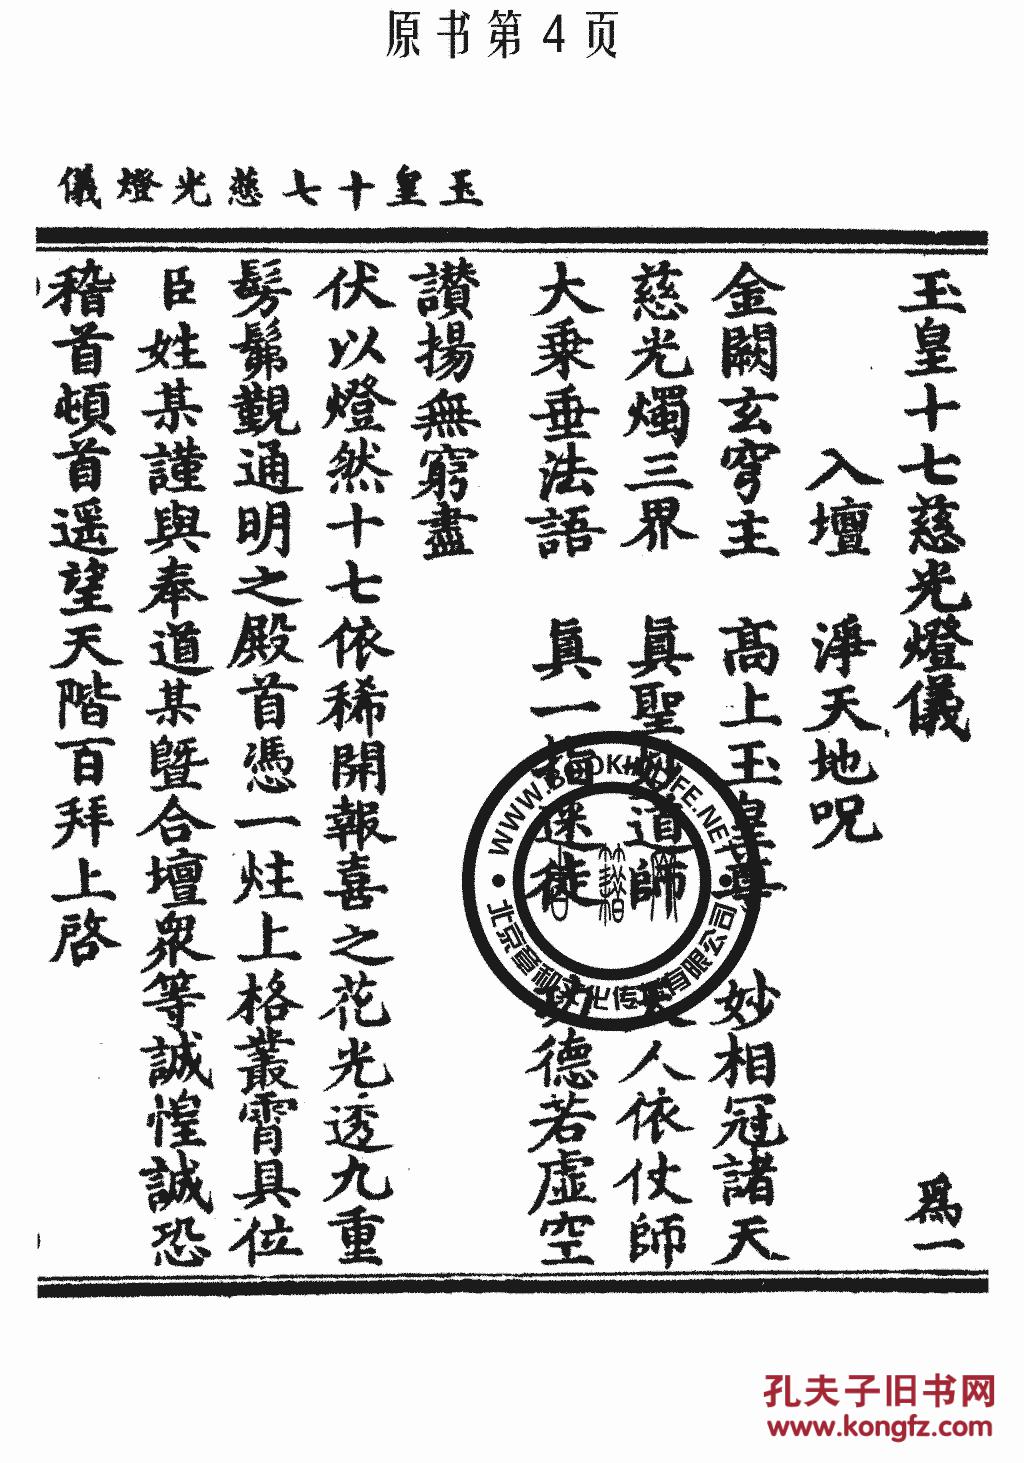 原书第4页
玉皇十七慈光燈儀
玉皇十七慈光燈儀 爲一
入壇 淨天地呪
金闕玄穹主 高上玉皇尊 妙相冠諸天
慈光燭三界 眞聖妙道師 人依仗師
大乘垂法語 眞一 德若虛空
讚揚無窮盡
伏以燈然十七依稀開報喜之花光透九重
髣髴覲通明之殿首憑一炷上格叢霄具位
臣姓某謹與奉道某暨合壇衆等誠惶誠恐
稽首頓首遥望天階百拜上啓
WWW.BOOKINLIFE.NET
北京意和文化传播有限公司
孔夫子旧书网
www.kongfz.com